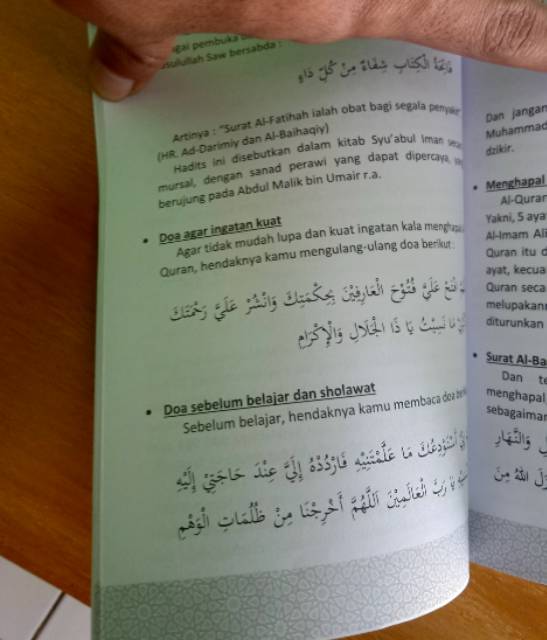 bagai pembuka
Rasulullah Saw bersabda :
فَاتِحَةُ الْكِتَابِ شِفَاءٌ مِنْ كُلِّ دَاءٍ
Artinya : "Surat Al-Fatihah ialah obat bagi segala penyakit
(HR. Ad-Darimiy dan Al-Baihaqiy)
Hadits ini disebutkan dalam kitab Syu'abul Iman
mursal, dengan sanad perawi yang dapat dipercaya,
berujung pada Abdul Malik bin Umair r.a.
• Doa agar ingatan kuat
Agar tidak mudah lupa dan kuat ingatan kala menghapal
Quran, hendaknya kamu mengulang-ulang doa berikut :
افْتَحْ عَلَيَّ فُتُوْحَ الْعَارِفِيْنَ بِحِكْمَتِكَ وَانْشُرْ عَلَيَّ رَحْمَتَكَ
مَا نَسِيْتُ يَا ذَا الْجَلَالِ وَالْإِكْرَامِ
• Doa sebelum belajar dan sholawat
Sebelum belajar, hendaknya kamu membaca doa
أَسْتَوْدِعُكَ مَا عَلَّمْتَنِيْهِ فَارْدُدْهُ إِلَيَّ عِنْدَ حَاجَتِيْ إِلَيْهِ
يَا رَبَّ الْعَالَمِيْنَ اَللَّهُمَّ أَخْرِجْنَا مِنْ ظُلُمَاتِ الْوَهْمِ
Dan jangan
Muhammad
dzikir.
• Menghapal
Al-Quran
Yakni, 5 aya
Al-Imam Ali
Quran itu d
ayat, kecua
Quran seca
melupakann
diturunkan
• Surat Al-Ba
Dan te
menghapal
sebagaiman
وَالنَّهَارِ
اللهُ مِنَ